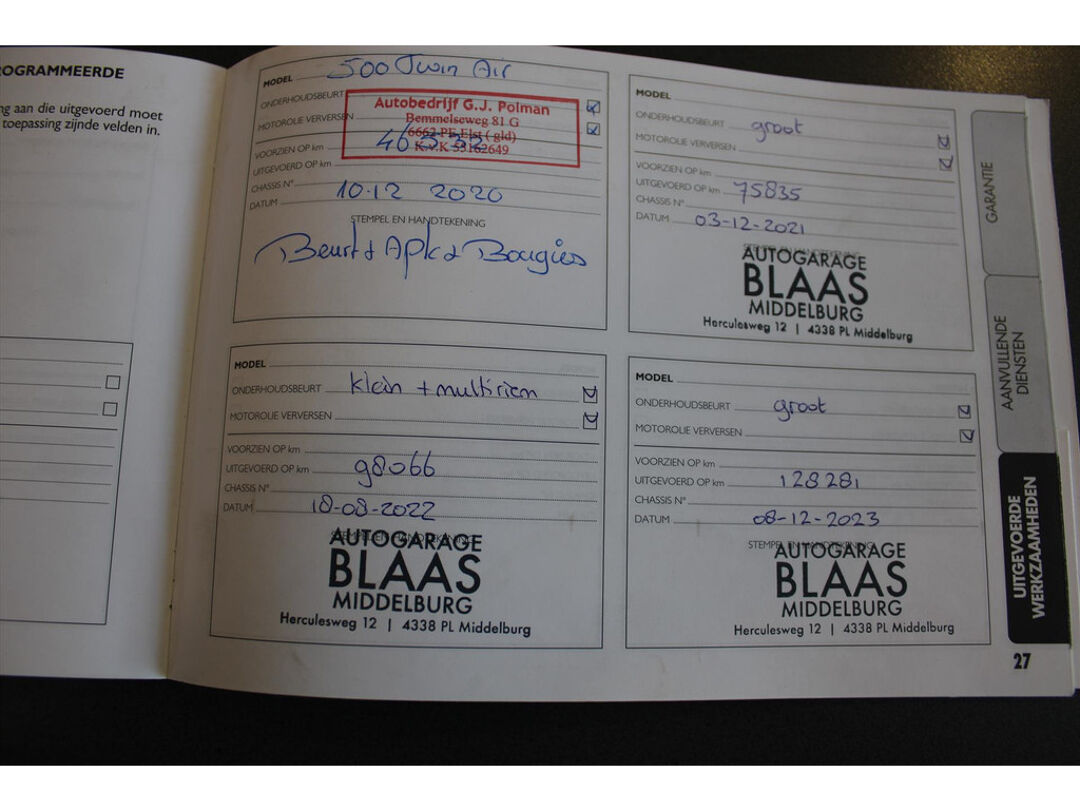 OGRAMMEERDE
ng aan die uitgevoerd moet
toepassing zijnde velden in.
MODEL 500 Twin Air
ONDERHOUDSBEURT
MOTOROLIE VERVERSEN
Autobedrijf G.J. Polman
Bemmelseweg 81 G
6662 PE Elst ( gld)
K.v.K 55162649
VOORZIEN OP km
UITGEVOERD OP km
CHASSIS N°
DATUM 10-12 2020
STEMPEL EN HANDTEKENING
Beurt + Apk + Bougies
MODEL
ONDERHOUDSBEURT groot
MOTOROLIE VERVERSEN
VOORZIEN OP km
UITGEVOERD OP km 75835
CHASSIS N°
DATUM 03-12-2021
STEMPEL EN HANDTEKENING
AUTOGARAGE
BLAAS
MIDDELBURG
Herculesweg 12 | 4338 PL Middelburg
MODEL
ONDERHOUDSBEURT klein + multiriem
MOTOROLIE VERVERSEN
VOORZIEN OP km
UITGEVOERD OP km 98066
CHASSIS N°
DATUM 18-08-2022
STEMPEL EN HANDTEKENING
AUTOGARAGE
BLAAS
MIDDELBURG
Herculesweg 12 | 4338 PL Middelburg
MODEL
ONDERHOUDSBEURT groot
MOTOROLIE VERVERSEN
VOORZIEN OP km
UITGEVOERD OP km 128281
CHASSIS N°
DATUM 08-12-2023
STEMPEL EN HANDTEKENING
AUTOGARAGE
BLAAS
MIDDELBURG
Herculesweg 12 | 4338 PL Middelburg
GARANTIE
AANVULLENDE
DIENSTEN
UITGEVOERDE
WERKZAAMHEDEN
27